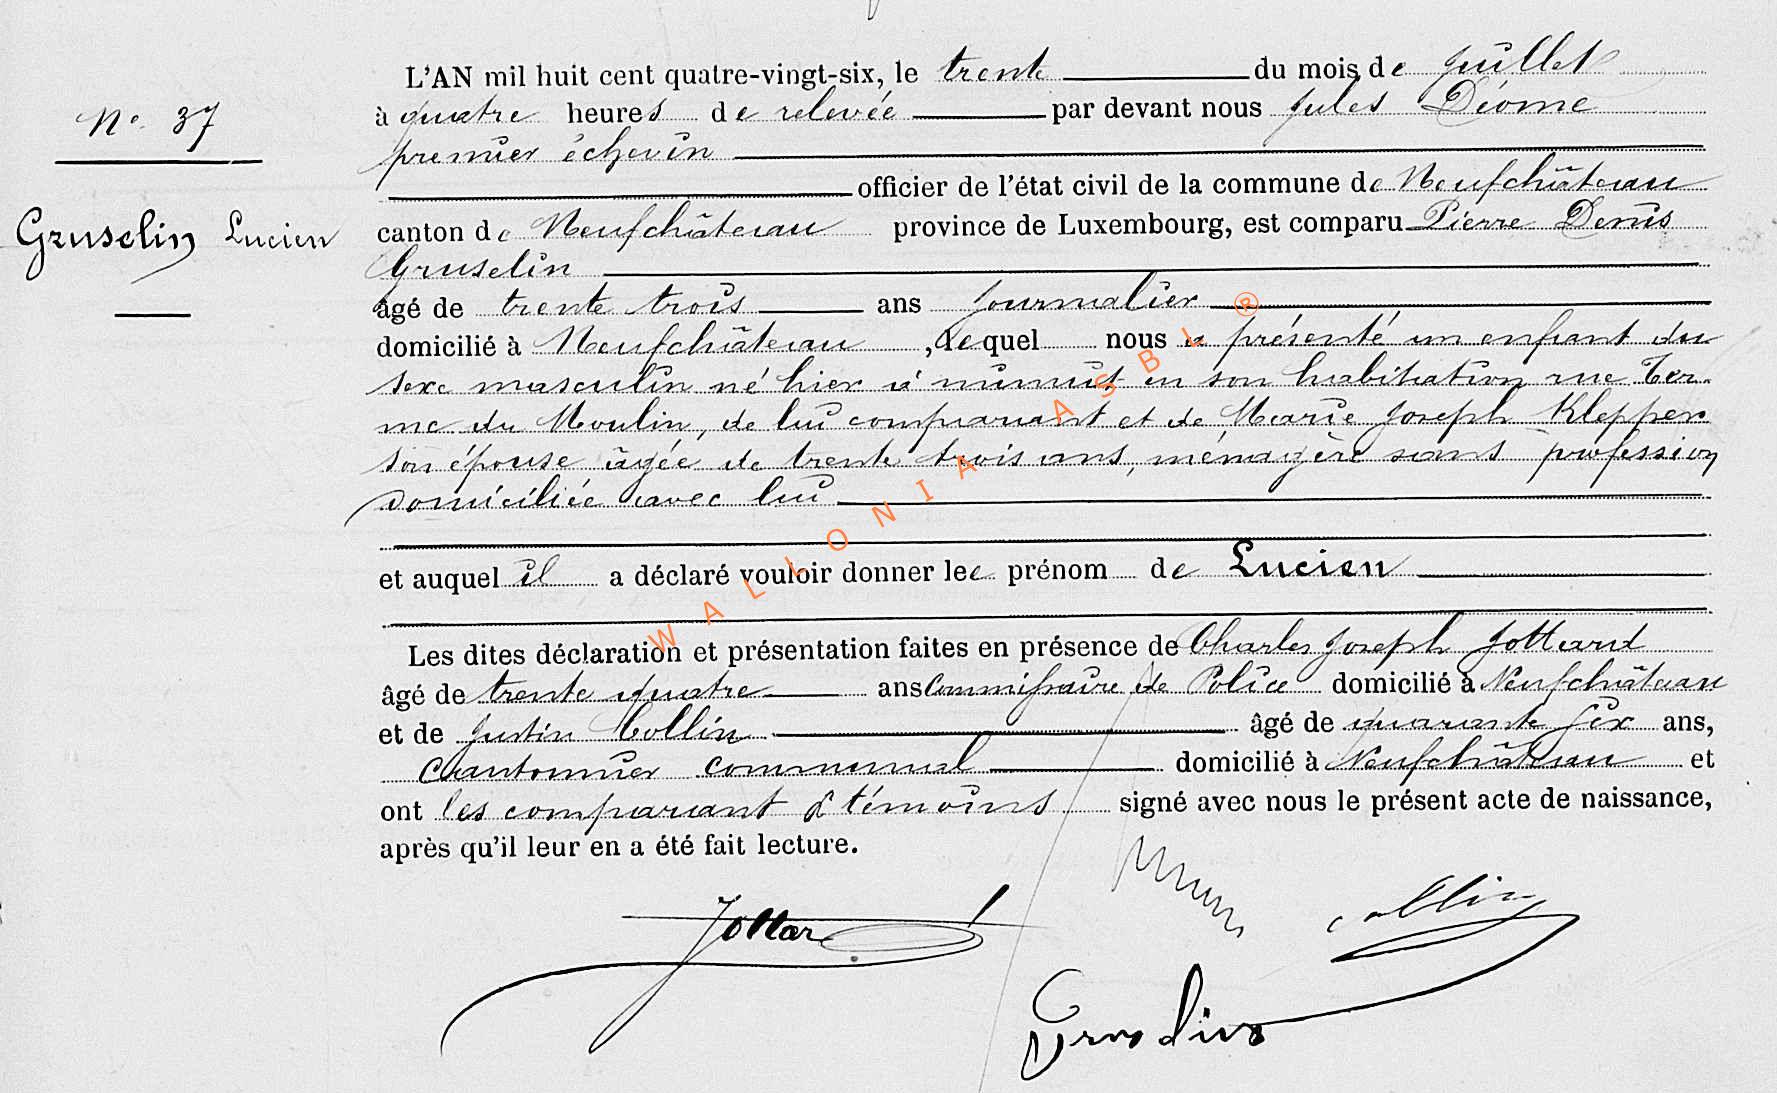 L'AN mil huit cent quatre-vingt-six, le trente du mois de juillet
à quatre heures de relevée par devant nous Jules Déome
premier échevin
officier de l'état civil de la commune de Neufchâteau
N° 37
Gruselin Lucien
canton de Neufchâteau province de Luxembourg, est comparu Pierre Denis
Gruselin
âgé de trente trois ans journalier
domicilié à Neufchâteau, lequel nous a présenté un enfant du
sexe masculin né hier à minuit en son habitation rue Ter-
me du Moulin, de lui comparant et de Marie Joseph Klepper
son épouse âgée de trente trois ans, ménagère sans profession
domiciliée avec lui
et auquel il a déclaré vouloir donner lee prénom de Lucien
Les dites déclaration et présentation faites en présence de Charles Joseph Jottard
âgé de trente quatre ans Commissaire de Police domicilié à Neufchâteau
et de Justin Collin âgé de quarante six ans,
Cantonnier communal domicilié à Neufchâteau et
ont les comparant & témoins signé avec nous le présent acte de naissance,
après qu'il leur en a été fait lecture.
Jottard
Collin
Gruselin
WALLONIA ASBL ®